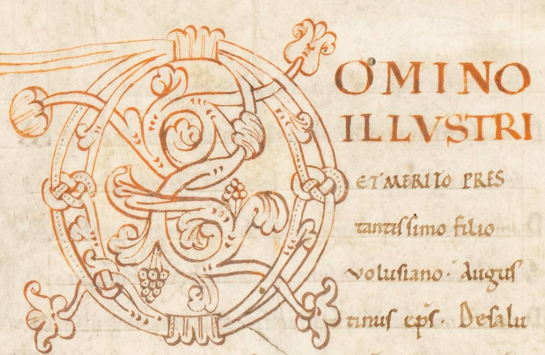 DOMINO
ILLVSTRI
ET MERITO PRES
tantissimo filio
volusiano· Augus
tinus eps̄· De salu